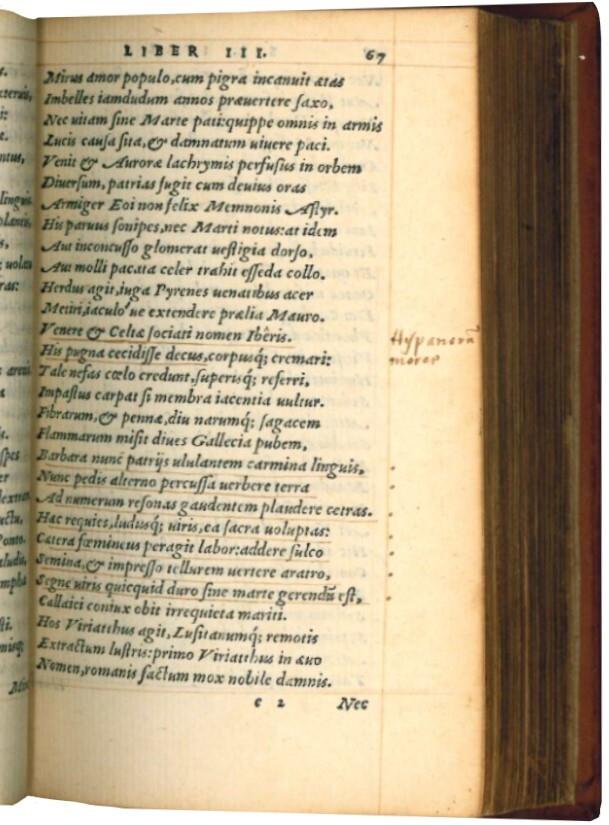 LIBER III. 67
Mirus amor populo, cum pigra incanuit ætas
Imbelles iamdudum annos præuertere saxo,
Nec uitam sine Marte pati:quippe omnis in armis
Lucis causa sita, & damnatum uiuere paci.
Venit & Auroræ lachrymis perfusus in orbem
Diuersum, patrias fugit cum deuius oras
Armiger Eoi non felix Memnonis Astyr.
His paruus sonipes, nec Marti notus:at idem
Aut inconcusso glomerat uestigia dorso,
Aut molli pacata celer trahit esseda collo.
Herdus agit, iuga Pyrenes uenatibus acer
Metiri, iaculo'ue extendere prælia Mauro.
Venere & Celtæ sociati nomen Ibêris.
Hyspanorũ
mores
His pugna cecidisse decus, corpusq; cremari:
Tale nefas cœlo credunt, superisq; referri,
Impastus carpat si membra iacentia uultur.
Fibrarum, & pennæ, diu narumq; sagacem
Flammarum misit diues Gallecia pubem,
Barbara nunc patrijs ululantem carmina linguis,
Nunc pedis alterno percussa uerbere terra
Ad numerum resonas gaudentem plaudere cetras.
Hæc requies, ludusq; uiris, ea sacra uoluptas:
Cætera fœmineus peragit labor:addere sulco
Semina, & impresso tellurem uertere aratro,
Segne uiris quicquid duro sine marte gerendũ est,
Callaici coniux obit irrequieta mariti.
Hos Viriatthus agit, Lusitanumq; remotis
Extractum lustris:primo Viriatthus in æuo
Nomen, romanis factum mox nobile damnis.
c 2 Nec